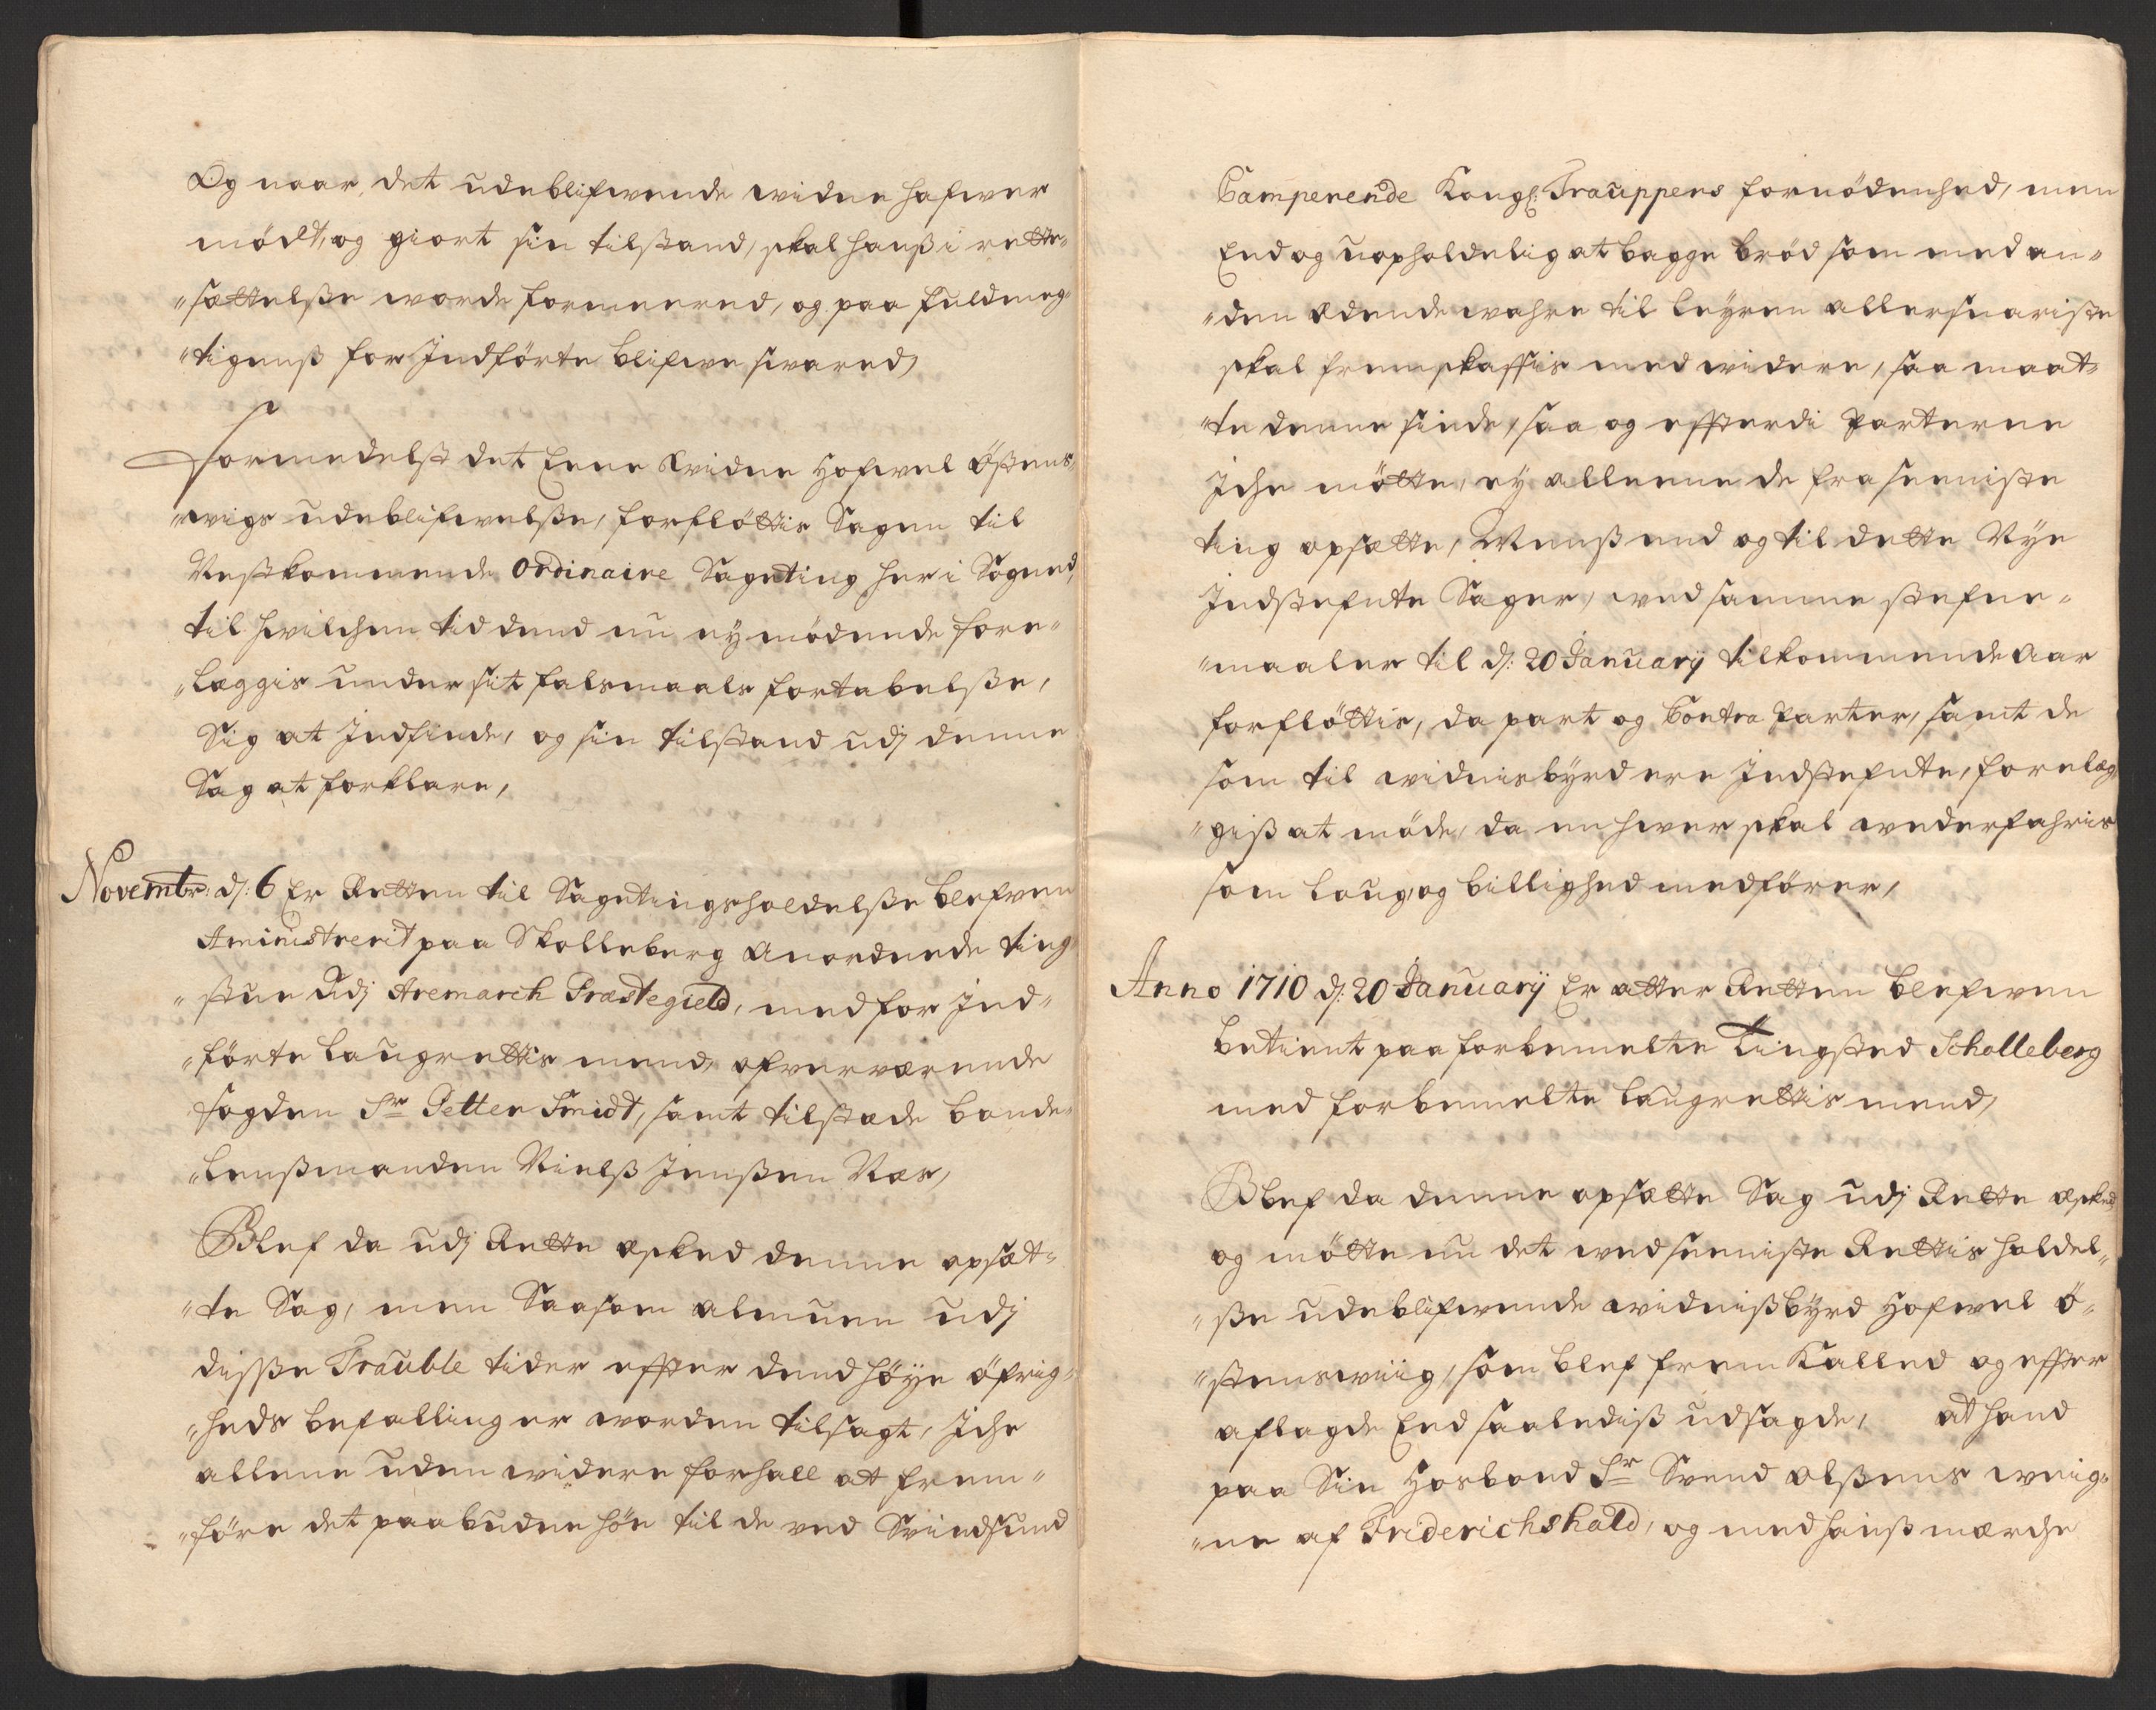 Og naar det udeblifwende widne hafwer
mödt, og giort sin tilstand, skal hanß i rette-
"sættelße worde formeered, og paa fuldmeg-
"tigenß for Indförte blifwe swared,
Formedelst det Eene Widne Hofwel Östens-
"wigs udeblifwelße, forflöttis Sagen til
Nestkommende Ordinaire Sageting her i Sogned,
til hwilchen tid dend nu ey mödende fore-
"læggis under sit falsmaals fortabelße,
Sig at Indfinde, og sin tilstand udj denne
Sag at forklare,
Novembr: d: 6 Er Retten til Sagetingsholdelße blefwen
Aministrerit paa Skolleberg Anordnede ting-
"stue Udj Aremarch Præstegield, med for Ind-
"förte laugrettis mend, ofwerwærende
fogden Sr Petter Smidt, samt tilstæde bonde-
"lenßmanden Nielß Jenßen Næs,
Blef da udj Rette esked denne opsæt-
"te Sag, men Saasom Almuen udj
disße Trauble tider effter dend höye öfrig-
"heds befalling er worden tilsagt, Iche
allene uden widere forhall at frem-
"före det paabudne höe til de ved Svindsund
Camperende Kongl: Trauppers fornödenhed, men
End og uopholdelig at bagge bröd som med an-
"den Ædendewahre til leyren allersnariste
skal fremskaffis med widere, saa maat-
"te denne sinde, saa og effterdi Parterne
Iche mötte, ey alleene de fra seeniste
ting opsætte, Menß end og til dette Nye
Indstefnte Sager, wed samme stefne-
"maaler til d: 20 January tilkommende Aar
forflöttis, da part og Contra Parter, samt de
som til widnisbyrd ere Indstefnte, forelæg-
"giß at möde, da en hwer skal wederfahris
som laug, og billighed medförer,
Anno 1710 d: 20 January Er atter Retten blefwen
betient paa forbemelte Tingsted Scholleberg
med forbemelte laugrettis mend,
Blef da denne opsætte Sag udj Rette esked
og mötte nu det wed seeniste Rettis holdel-
"ße udeblifwende widnißbyrd Hofwel Ö-
"stenswiig, som blef frem Kalled og effter
aflagde Eed saalediß udsagde, at hand
paa Sin Hosbond Sr Svend Olßens weig-
"ne af Friderichshald, og med hanß merche